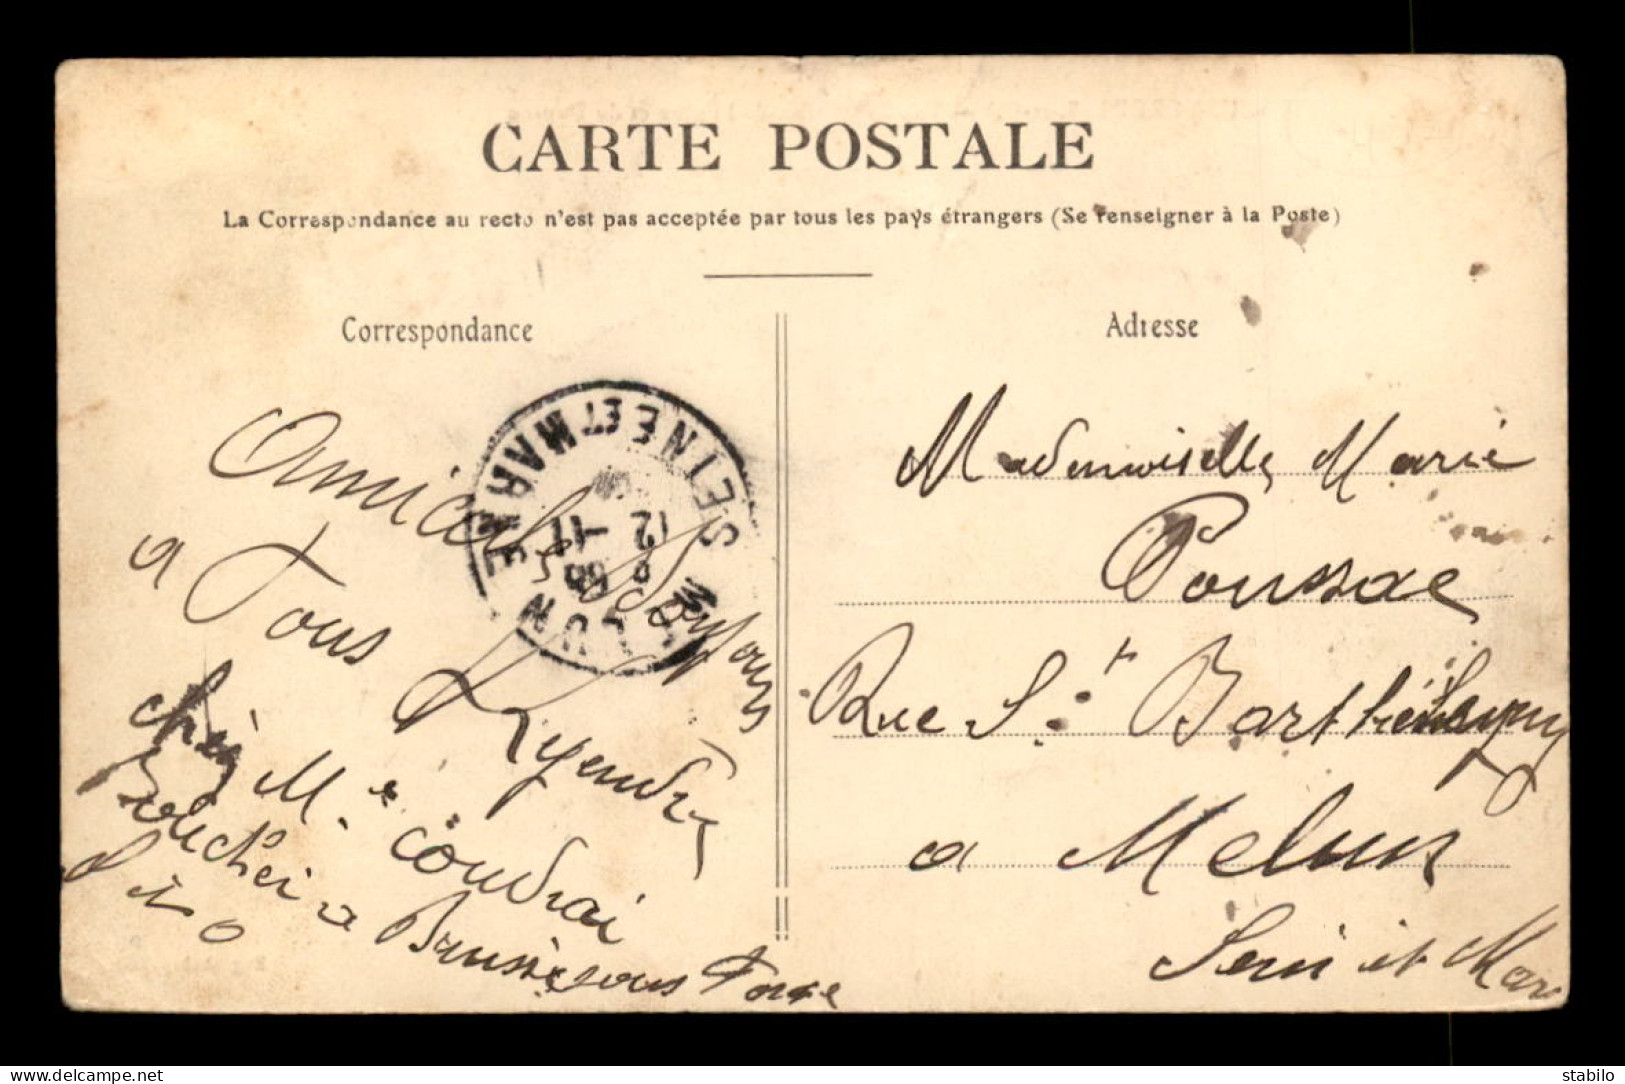 CARTE POSTALE
La Correspondance au recto n'est pas acceptée par tous les pays étrangers (Se renseigner à la Poste)
Correspondance
Adresse
Amicales Bonjours
a Tous
chez Mr Coudrai
Boucher a Brussè sous Forge
MELUN
SEINE ET MARNE
12 -11
Mademoiselle Marie
Poussac
Rue St Barthélemy
a Melun
Sein et Mar
www.delcampe.net
stabilo